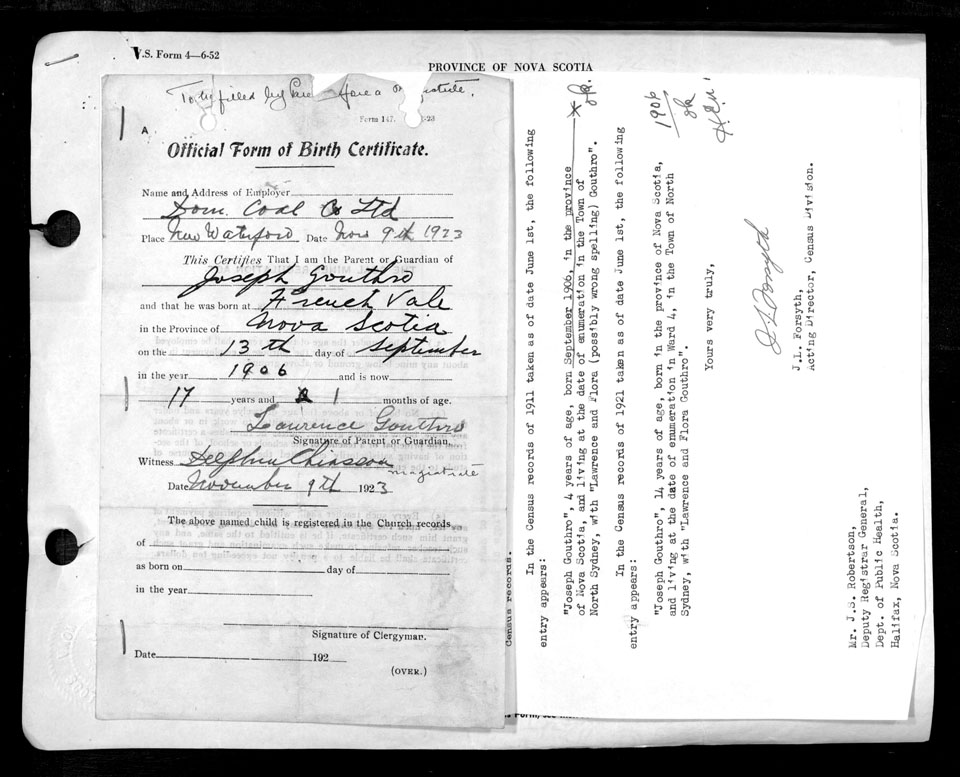 V.S. Form 4—6-52
PROVINCE OF NOVA SCOTIA
To be filled by
Form 147.
A
Official Form of Birth Certificate.
Name and Address of Employer
Dom. Coal Co Ltd
Place New Waterford Date Nov 9th 1923
This Certifies That I am the Parent or Guardian of
Joseph Gouthro
and that he was born at French Vale
in the Province of Nova Scotia
on the 13th day of September
in the year 1906 and is now
17 years and 1 months of age.
Lawrence Gouthro
Signature of Patent or Guardian.
Witness Chiasson
magistrate
Date November 9th 1923
The above named child is registered in the Church records
of
as born on day of
in the year
Signature of Clergyman.
Date 192
(OVER.)
Census records.
In the Census records of 1911 taken as of date June 1st, the following
entry appears:
"Joseph Gouthro", 4 years of age, born September 1906, in the province
of Nova Scotia, and living at the date of enumeration in the Town of
North Sydney, with "Lawrence and Flora (possibly wrong spelling) Gouthro".
In the Census records of 1921 taken as of date June 1st, the following
entry appears:
"Joseph Gouthro", 14 years of age, born in the province of Nova Scotia,
and living at the date of enumeration in Ward 4, in the Town of North
Sydney, with "Lawrence and Flora Gouthro".
1906
Yours very truly,
J L Forsyth
J.L. Forsyth,
Acting Director, Census Division.
Mr. J.S. Robertson,
Deputy Registrar General,
Dept. of Public Health,
Halifax, Nova Scotia.